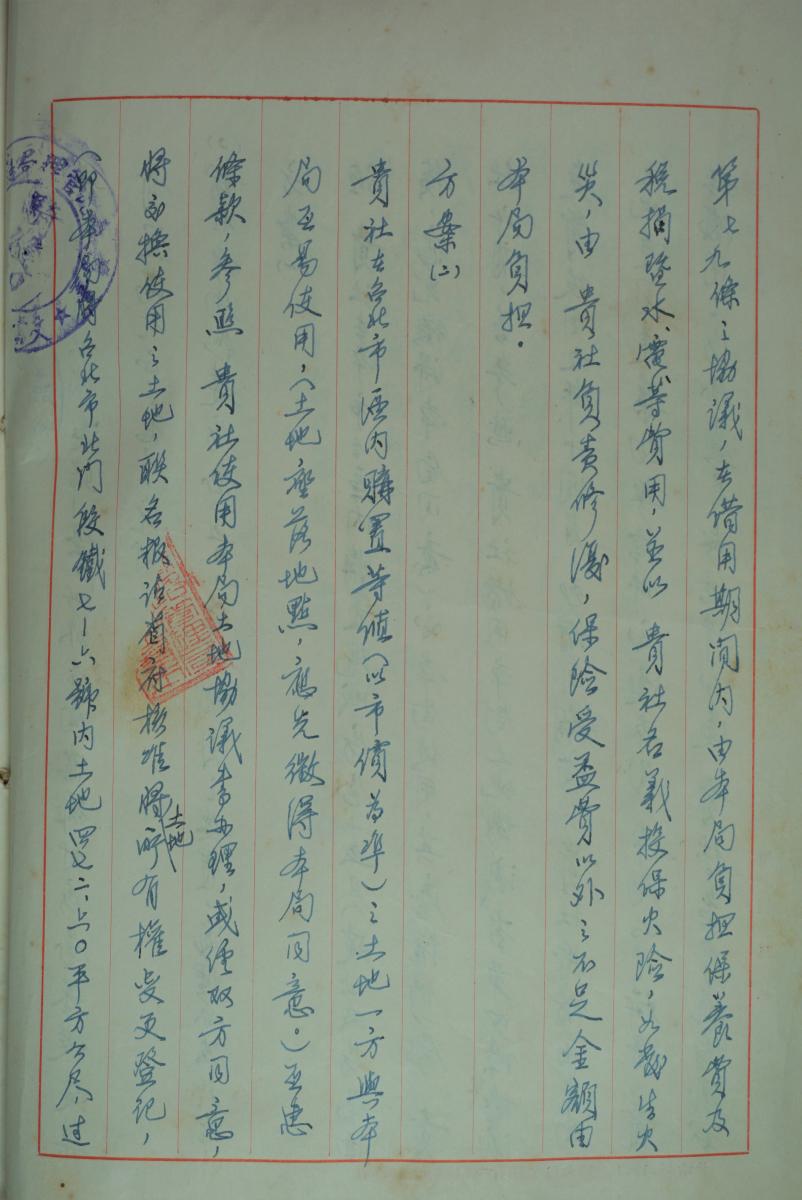 第七九條之協議，在借用期間內，由本局負担保養費及
稅捐暨水、電等費用，並以　貴社名義投保火險，如發生火
災，由　貴社負責修復，保險受益費以外之不足金額由
本局負担。
方案(二)
貴社在台北市區內購置等值（以市價為準）之土地一方與本
局互易使用，（土地座落地點，應先徵得本局同意。）互惠
條款，參照　貴社使用本局土地協議書办理，或經双方同意，
將交換使用之土地，聯名報請省府核准將土地所有權变更登記，
（即本局將台北市北門段鐵七－六號內土地四七二、六〇平方公尺，过